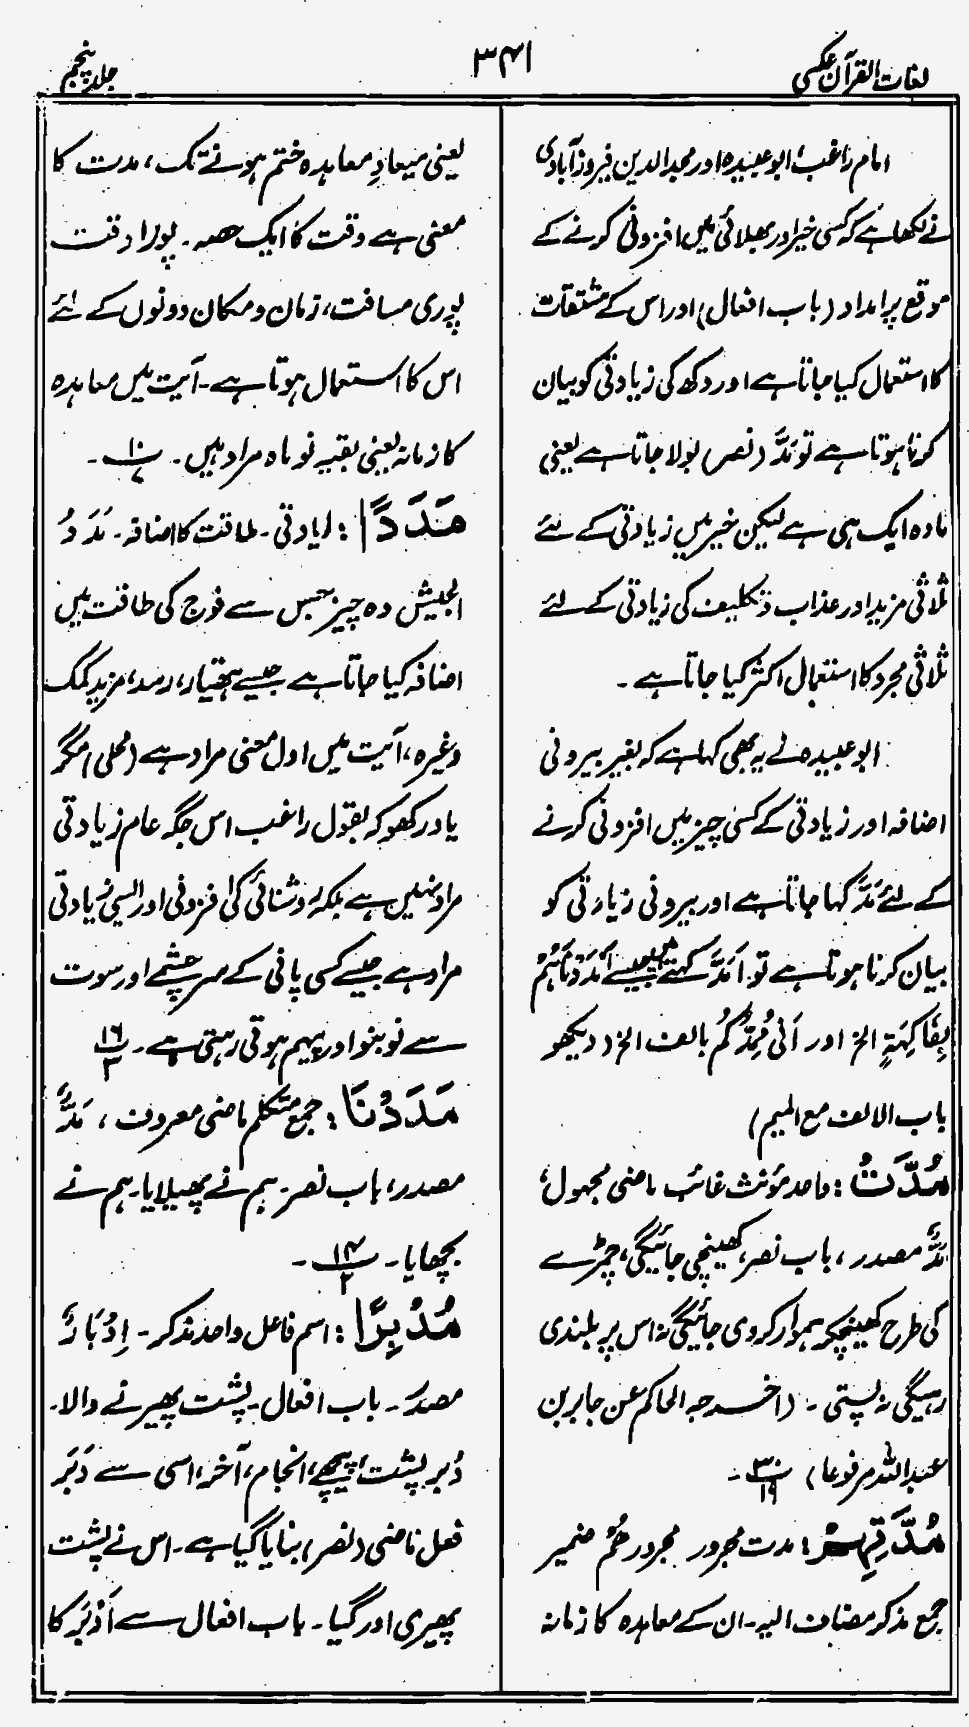 لغات القرآن عکسی
۳۴۱
جلد پنجم
امام راغب، ابوعبیدہ اور مجدالدین فیروزآبادی
نے لکھا ہے کہ کسی خیر اور بھلائی میں افزونی کرنے کے
موقع پر امداد (باب افعال) اور اس کے مشتقات
کا استعمال کیا جاتا ہے اور دکھ کی زیادتی کو بیان
کرنا ہوتا ہے تو مَدَّ (نصر) بولا جاتا ہے یعنی
مادہ ایک ہی ہے لیکن خیر میں زیادتی کے لئے
ثلاثی مزید اور عذاب و تکلیف کی زیادتی کے لئے
ثلاثی مجرد کا استعمال اکثر کیا جاتا ہے۔
ابوعبیدہ نے یہ بھی کہا ہے کہ بغیر بیرونی
اضافہ اور زیادتی کے کسی چیز میں افزونی کرنے
کے لئے مَدَّ کہا جاتا ہے اور بیرونی زیادتی کو
بیان کرنا ہوتا ہے تو اَمَدَّ کہتے ہیں جیسے اَمْدَدْنَاهُمْ
بِفَاكِهَةٍ الخ اور اَنِّی مُمِدُّکُمْ بالف الخ (دیکھو
باب الالف مع المیم)
مُدَّتْ : واحد مؤنث غائب ماضی مجہول،
مَدٌّ مصدر، باب نصر، کھینچی جائیگی، چمڑے
کی طرح کھینچکر ہموار کردی جائیگی نہ اس پر بلندی
رہیگی نہ پستی ۔ (اخرجہ الحاکم عن جابر بن
عبداللہ مرفوعا) ۳۰/۱۹ ۔
مُدَّتِهِمْ : مدت مجرور مجرور هُمْ ضمیر
جمع مذکر مضاف الیہ۔ ان کے معاہدہ کا زمانہ
یعنی میعادِ معاہدہ ختم ہونے تک، مدت کا
معنی ہے وقت کا ایک حصہ ۔ پورا وقت
پوری مسافت، زمان و مکان دونوں کے لئے
اس کا استعمال ہوتا ہے۔ آیت میں معاہدہ
کا زمانہ یعنی بقیہ نو ماہ مراد ہیں۔ ۱۰/۷ ۔
مَدَدًا : زیادتی ۔ طاقت کا اضافہ ۔ مَدَدُ
الجیش وہ چیز جس سے فوج کی طاقت میں
اضافہ کیا جاتا ہے جیسے ہتھیار، رسد، مزید کمک
وغیرہ، آیت میں اول معنی مراد ہے (محلی) مگر
یاد رکھو کہ بقول راغب اس جگہ عام زیادتی
مراد نہیں ہے بلکہ روشنائی کی افزونی اور ایسی زیادتی
مراد ہے جیسے کسی پانی کے سرچشمے اور سوت
سے نو بنو اور پیہم ہوتی رہتی ہے ۔ ۱۶/۳
مَدَدْنَا : جمع متکلم ماضی معروف ، مَدٌّ
مصدر، باب نصر۔ ہم نے پھیلایا۔ ہم نے
بچھایا ۔ ۱۴/۲ ۔
مُدْبِرًا : اسم فاعل واحد مذکر ۔ اِدْبَارٌ
مصدر ۔ باب افعال۔ پشت پھیرنے والا۔
دُبر پشت، پیچھے، انجام، آخر، اسی سے دَبَرَ
فعل ماضی (نصر) بنایا گیا ہے۔ اس نے پشت
پھیری اور گیا ۔ باب افعال سے اَدْبَرَ کا